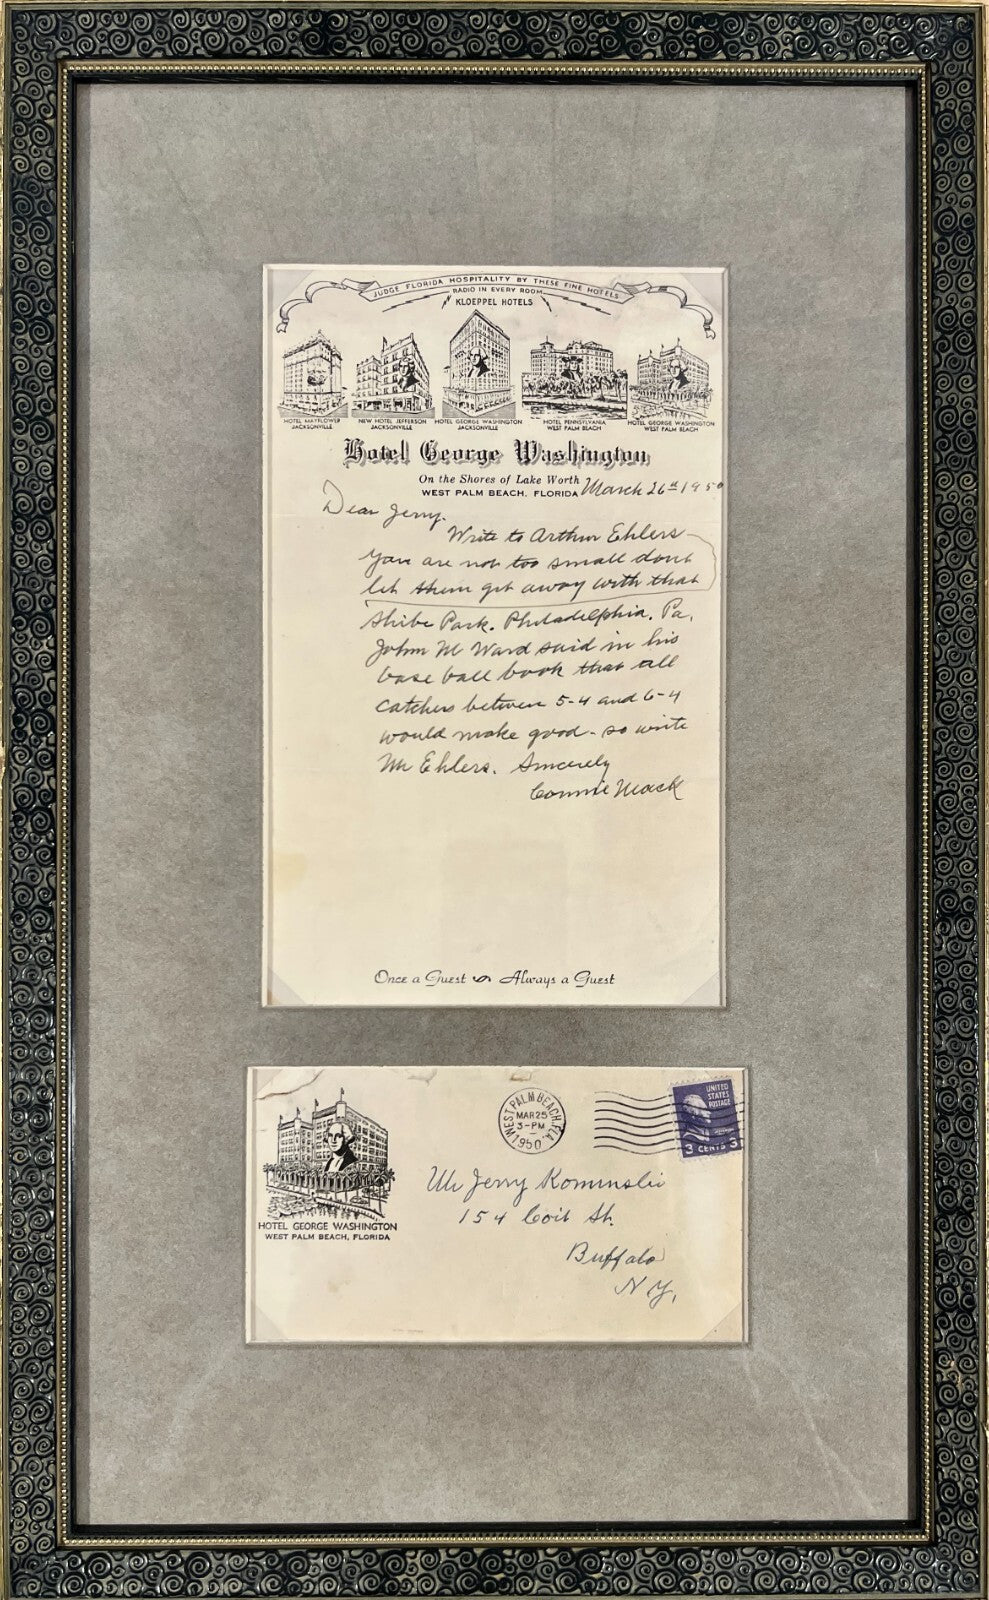 JUDGE FLORIDA HOSPITALITY BY THESE FINE HOTELS
RADIO IN EVERY ROOM
KLOEPPEL HOTELS
HOTEL MAYFLOWER
JACKSONVILLE
NEW HOTEL JEFFERSON
JACKSONVILLE
HOTEL GEORGE WASHINGTON
JACKSONVILLE
HOTEL PENNSYLVANIA
WEST PALM BEACH
HOTEL GEORGE WASHINGTON
WEST PALM BEACH
Hotel George Washington
On the Shores of Lake Worth
WEST PALM BEACH, FLORIDA March 26th 1950
Dear Jerry.
Write to Arthur Ehlers
you are not too small dont
let them get away with that
Shibe Park. Philadelphia. Pa.
John M Ward said in his
base ball book that all
catchers between 5-4 and 6-4
would make good - so write
Mr Ehlers. Sincerely
Connie Mack
Once a Guest Always a Guest
HOTEL GEORGE WASHINGTON
WEST PALM BEACH, FLORIDA
WEST PALM BEACH, FLA.
MAR 25
3-PM
1950
UNITED
STATES
POSTAGE
3 CENTS 3
Mr Jerry Kominski
154 Coit St.
Buffalo
N Y.